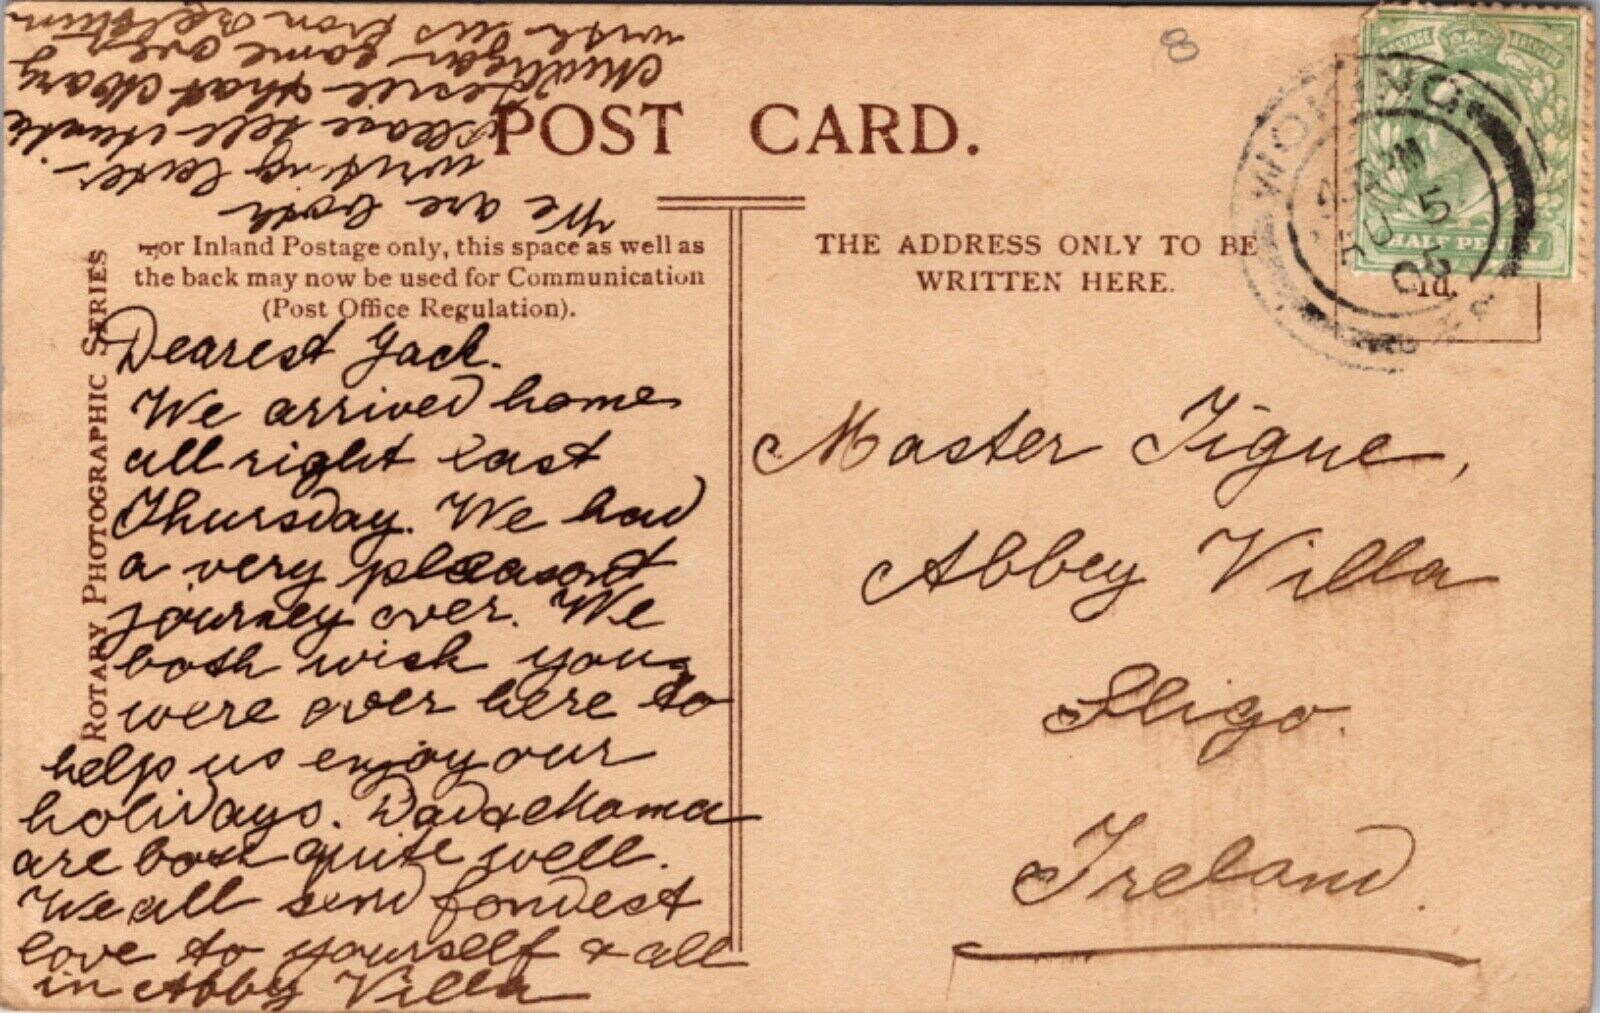 8
POST CARD.
For Inland Postage only, this space as well as
the back may now be used for Communication
(Post Office Regulation).
THE ADDRESS ONLY TO BE
WRITTEN HERE.
ROTARY PHOTOGRAPHIC SERIES
POSTAGE
HALF PENNY
½d.
WOKING
AU 5
05
Dearest Jack.
We arrived home
all right last
Thursday. We had
a very pleasant
journey over. We
both wish you
were over here to
help us enjoy our
holidays. Dad & Mama
are both quite well.
We all send fondest
love to yourself & all
in Abbey Villa
We are both
writing later.
Please tell
that Mary
came over
with us from
Master Tigue,
Abbey Villa
Sligo.
Ireland.